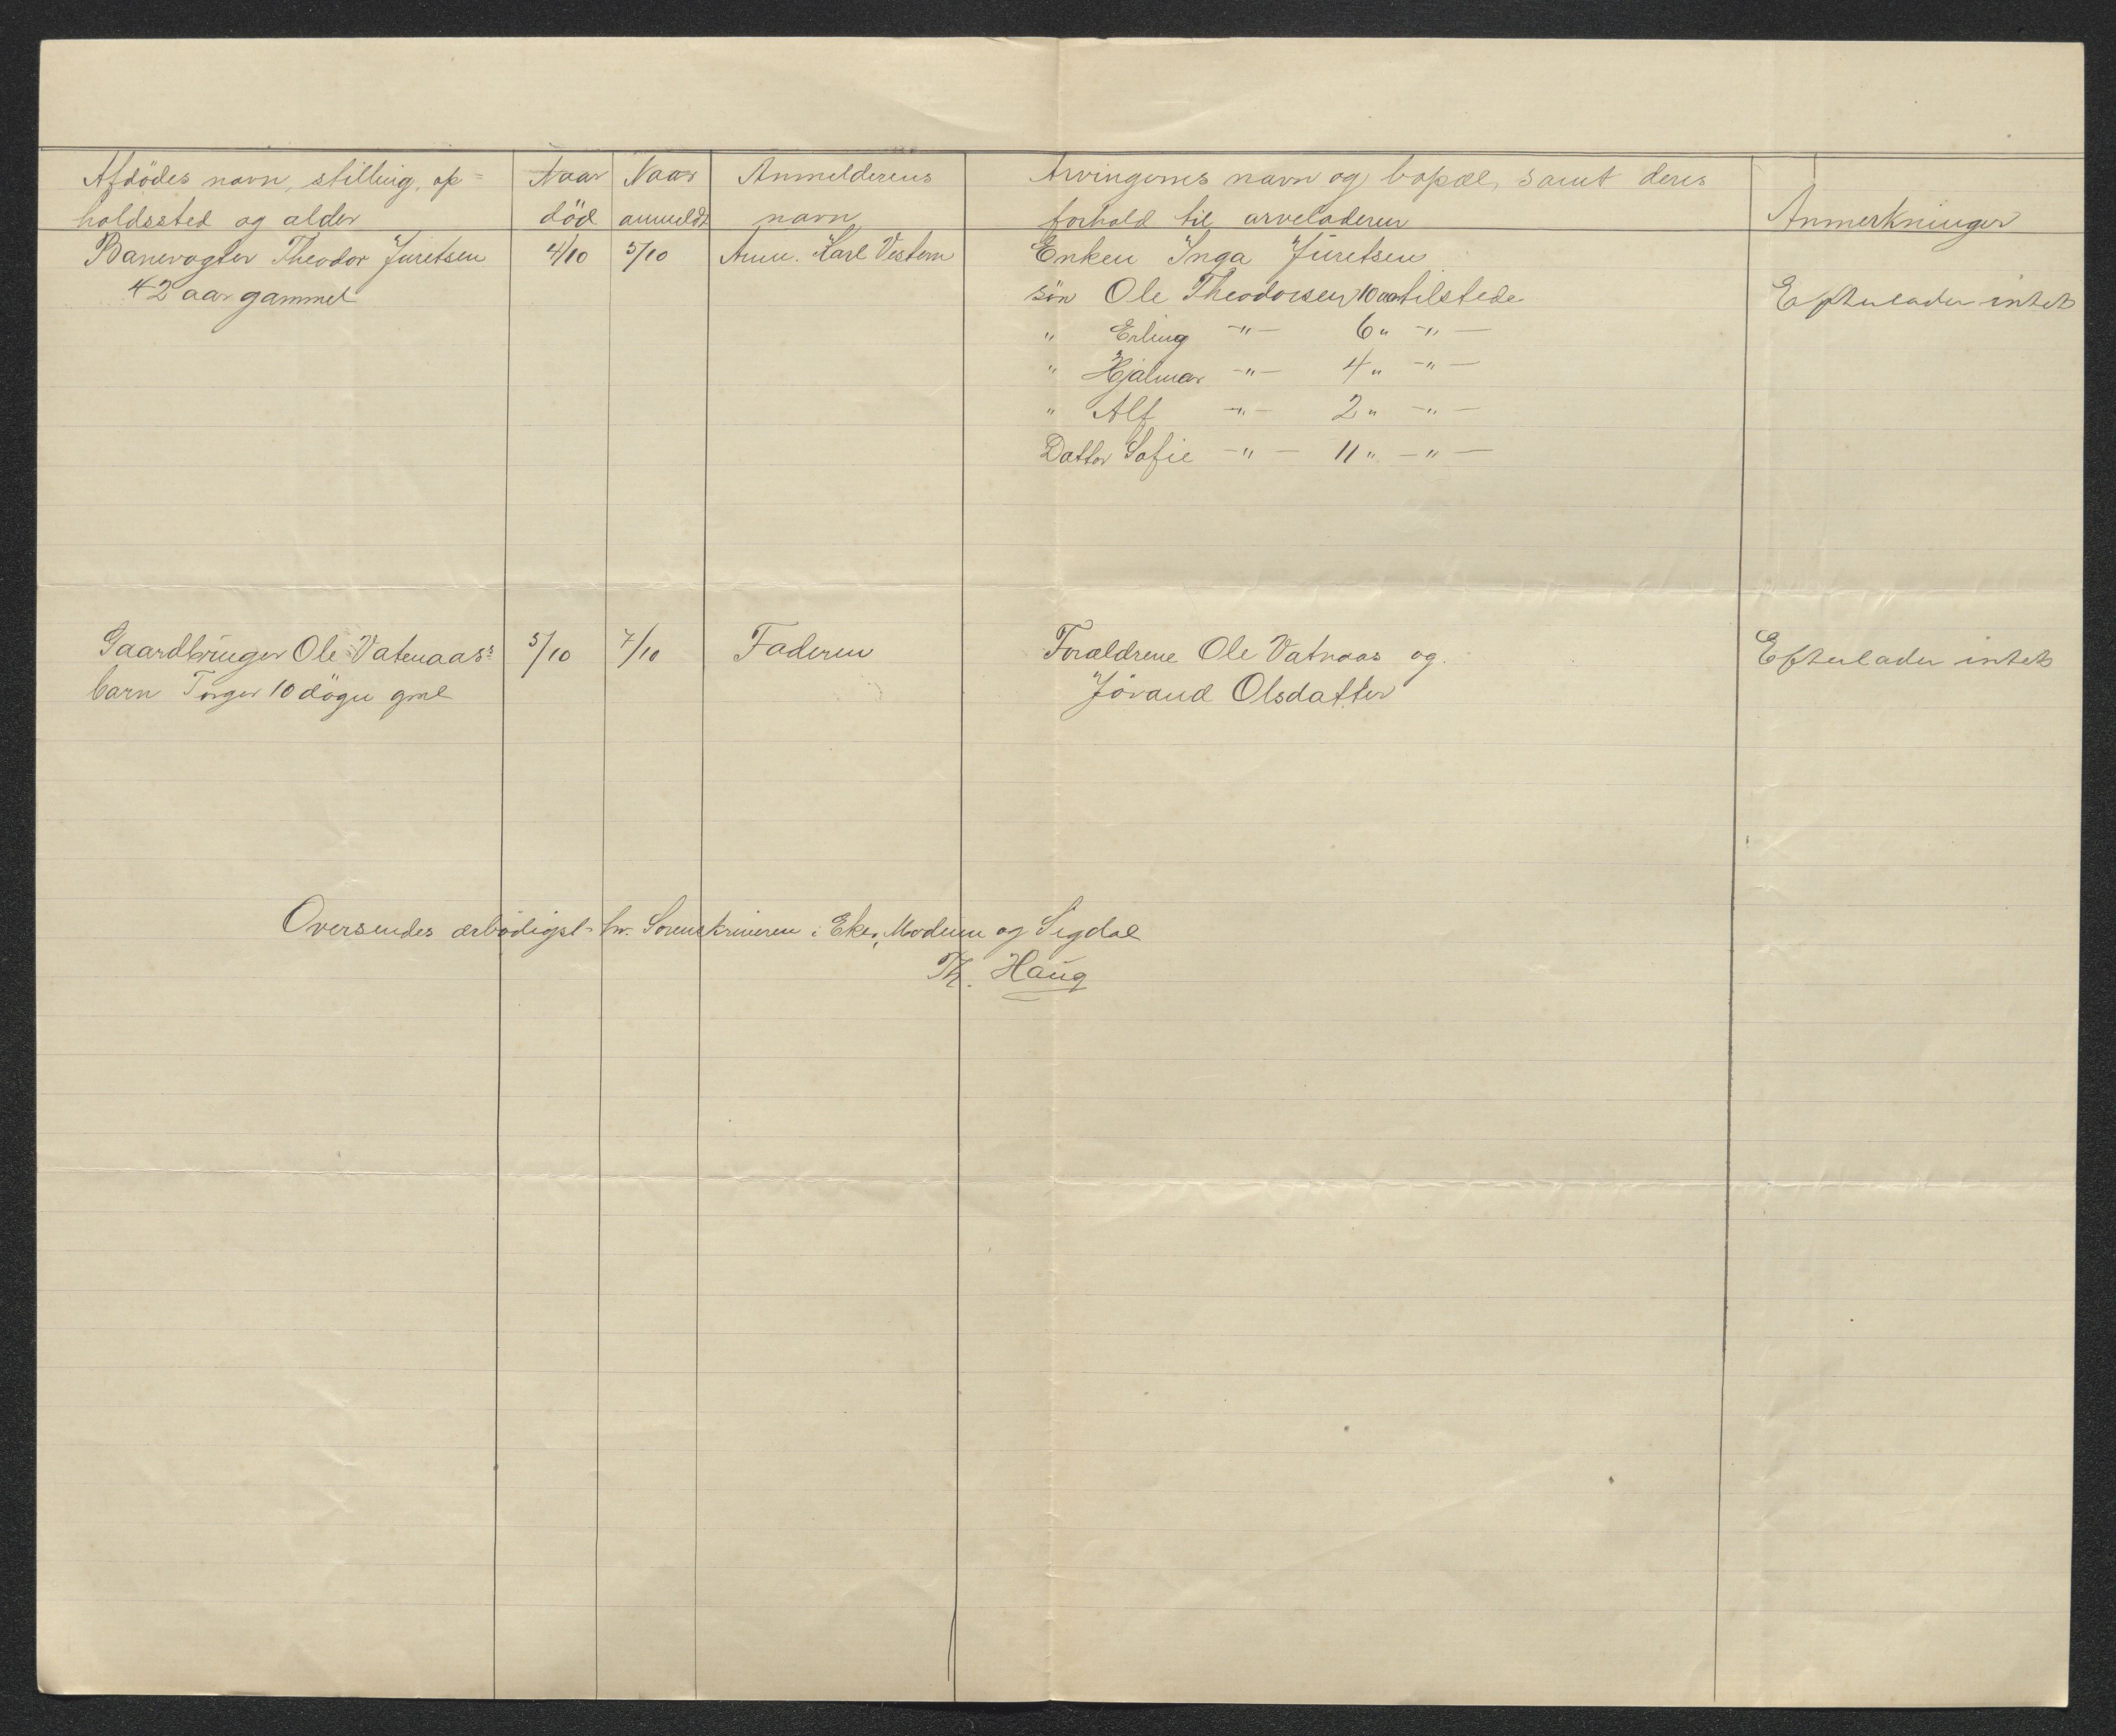 Afdödes navn, stilling, op=
holdssted og alder
Naar
död
Naar
anmeldt
Anmelderens
navn
Arvingernes navn og bopæl, samt deres
forhold til arveladeren
Anmerkninger
Banevogter Theodor Juretsen
42 aar gammel
4/10
5/10
Anm. Karl Vestern
Enken Inga Juretsen
Efterlader intet
sön Ole Theodorsen 10 aar tilstede
" Erling -"- 6 " -"-
" Hjalmar -"- 4 " -"-
" Alf -"- 2 " -"-
Datter Sofie -"- 11 " -"-
Gaardbruger Ole Vatenaas's
barn Torger 10 dögn gml
5/10
7/10
Faderen
Forældrene Ole Vatnaas og
Jörand Olsdatter
Efterlader intet
Oversendes ærbödigst hr. Sorenskriveren i Eker, Modum og Sigdal
Th. Haug